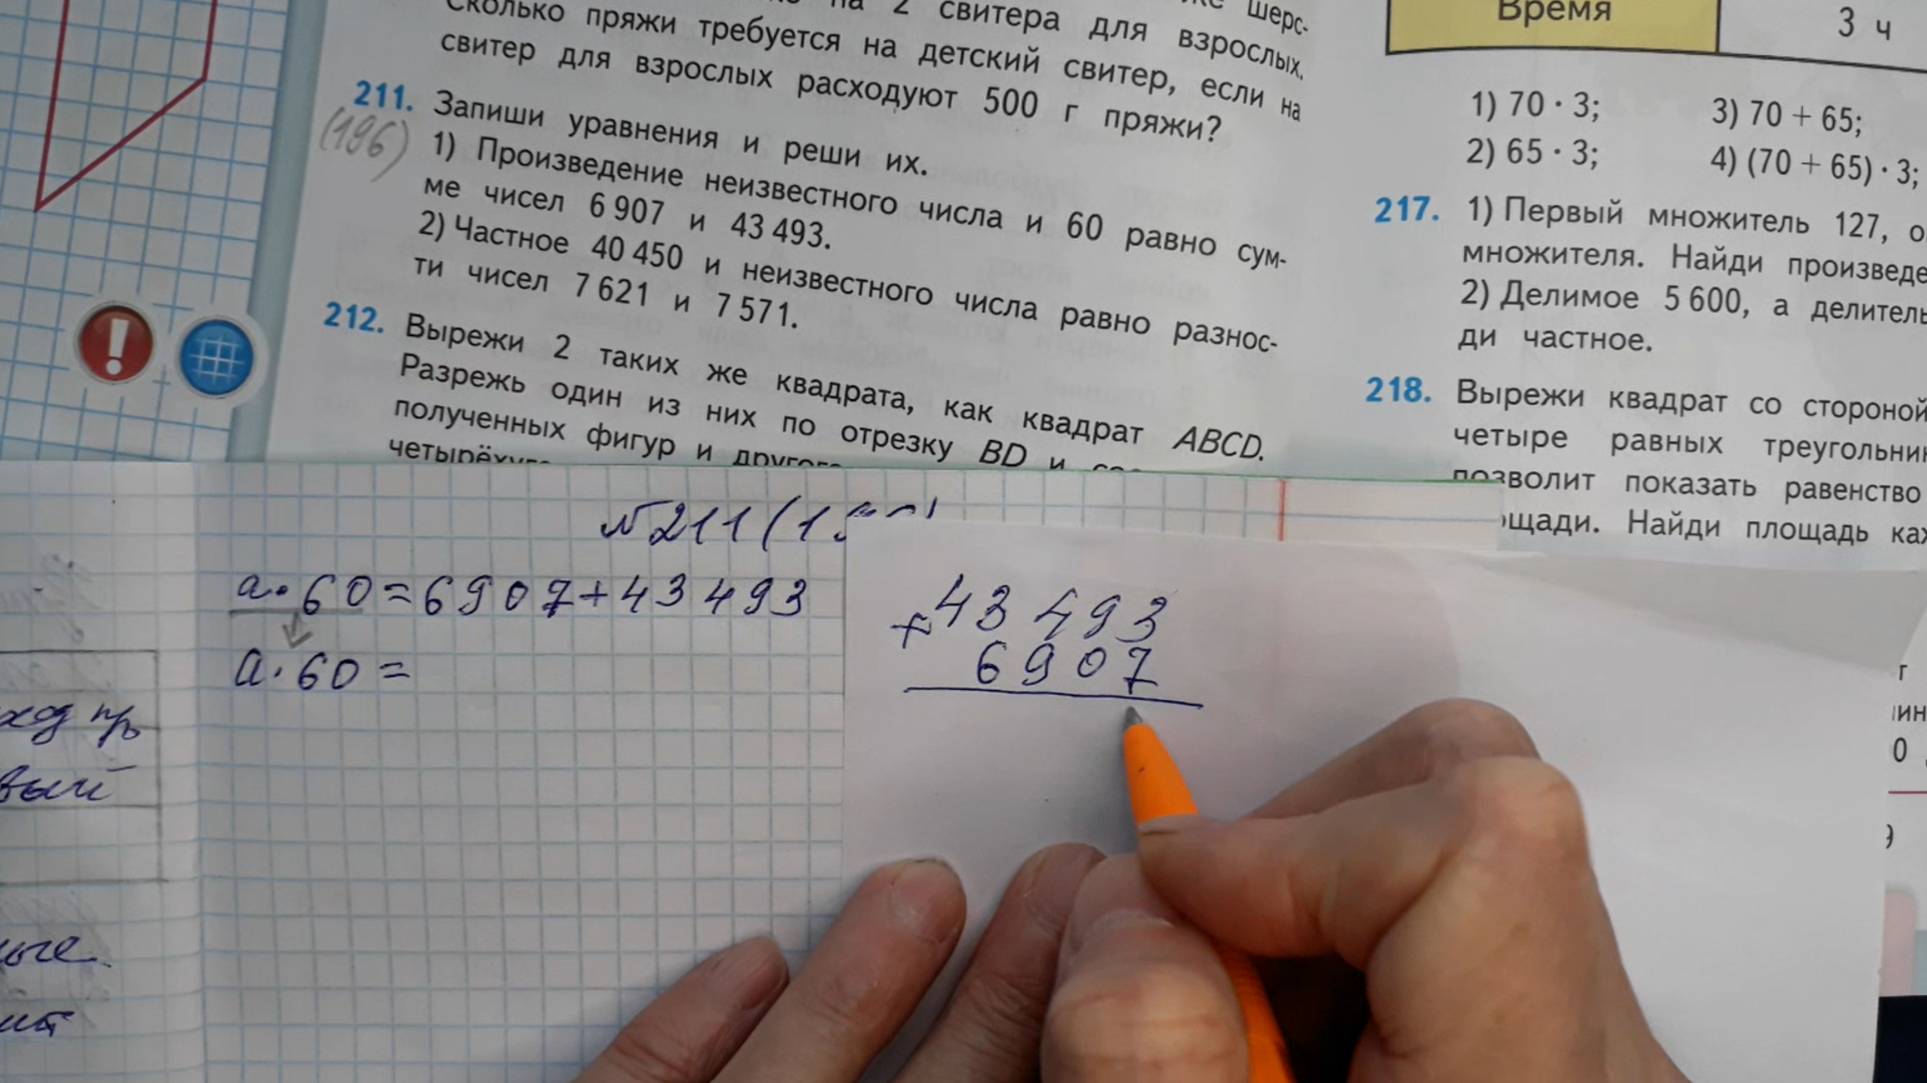 на 2 свитера для взрослых.
Сколько пряжи требуется на детский свитер, если на
свитер для взрослых расходуют 500 г пряжи?
211. Запиши уравнения и реши их.
(196)
1) Произведение неизвестного числа и 60 равно сум-
ме чисел 6 907 и 43 493.
2) Частное 40 450 и неизвестного числа равно разнос-
ти чисел 7 621 и 7 571.
212. Вырежи 2 таких же квадрата, как квадрат ABCD.
Разрежь один из них по отрезку BD и
полученных фигур и другого
Время 3 ч
1) 70 · 3; 3) 70 + 65;
2) 65 · 3; 4) (70 + 65) · 3;
217. 1) Первый множитель 127, о
множителя. Найди произведе
2) Делимое 5 600, а делитель
ди частное.
218. Вырежи квадрат со стороной
четыре равных треугольни
позволит показать равенство
ощади. Найди площадь ка
N211(1
a·60=6907+43493
a·60=
43493
+
6907
ход пр
вый